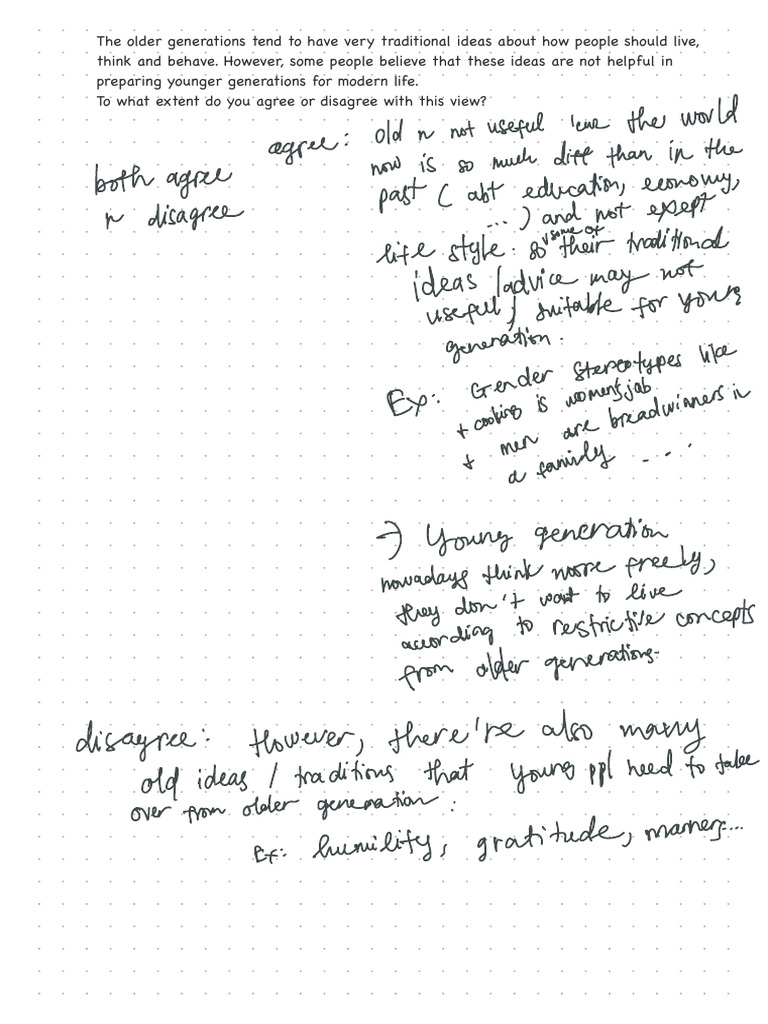 The older generations tend to have very traditional ideas about how people should live,
think and behave. However, some people believe that these ideas are not helpful in
preparing younger generations for modern life.
To what extent do you agree or disagree with this view?
both agree
n disagree
agree: old n not useful the world
now is so much diff than in the
past ( abt education, economy,
...) and not exept
life style. so some of their traditional
ideas / advice may not
useful / suitable for young
generation.
Ex: Gender stereotypes like
+ cooking is women's job
+ men are breadwinners in
a family ...
→ Young generation
nowadays think more freely,
they don't want to live
according to restrictive concepts
from older generations.
disagree: However, there're also many
old ideas / traditions that young ppl need to take
over from older generation.
Ex: humility, gratitude, manners...